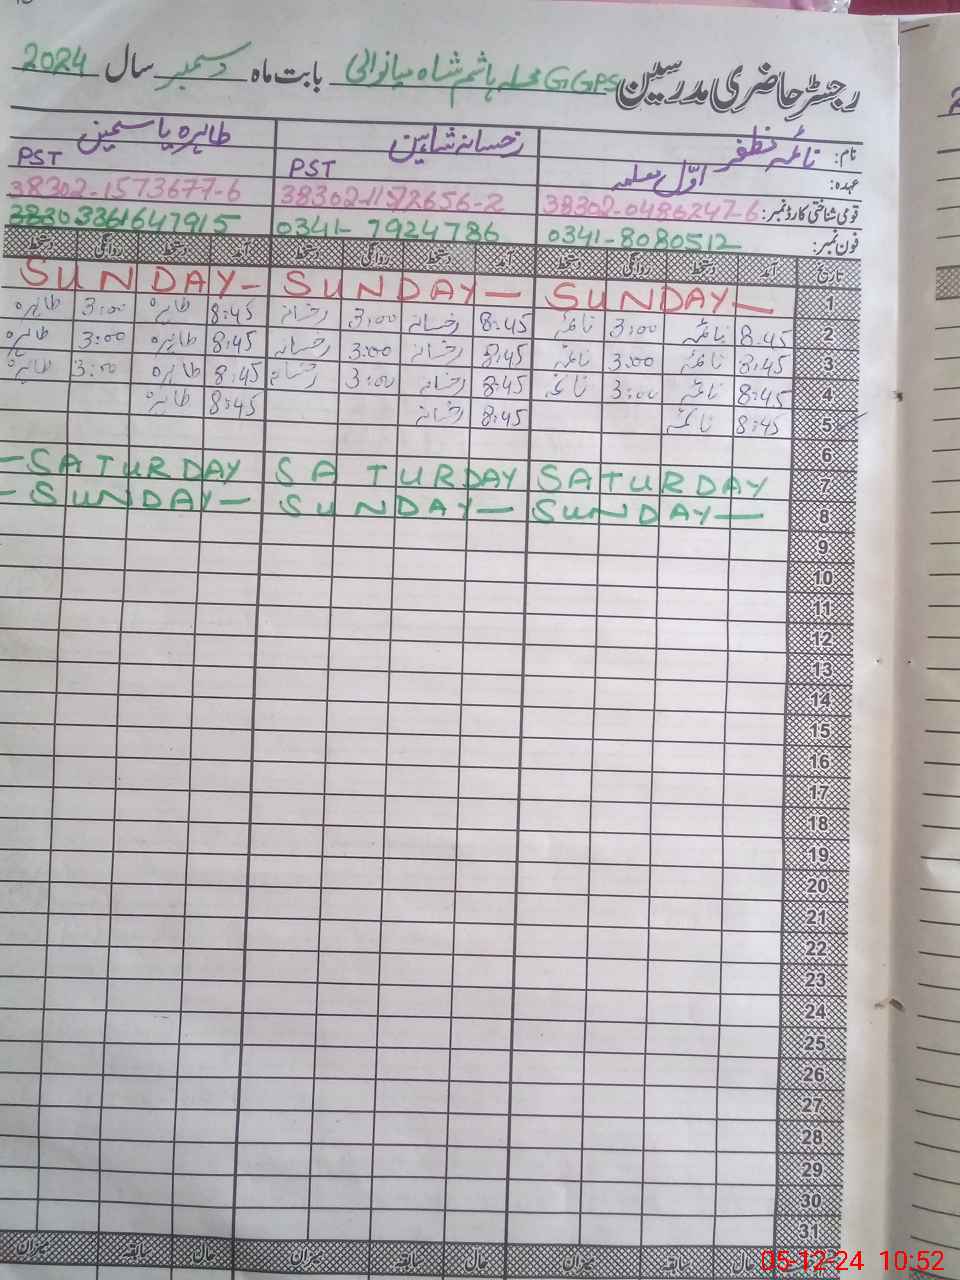 رجسٹر حاضری مدرسین GGPS محلہ ہاشم شاہ میانوالی بابت ماہ دسمبر سال 2024
نام: نائمہ مظفر رخسانہ شاہین طاہرہ یاسمین
عہدہ: اوّل معلمہ PST PST
قومی شناختی کارڈ نمبر: 38302-0486247-6 38302-1152656-2 38302-1573677-6
فون نمبر: 0341-8080512 0341-7924786 03361647915
تاریخ آمد دستخط روانگی دستخط آمد دستخط روانگی دستخط آمد دستخط روانگی دستخط
1 SUNDAY- SUNDAY- SUNDAY-
2 8:45 نائمہ 3:00 نائمہ 8:45 رخسانہ 3:00 رخسانہ 8:45 طاہرہ 3:00 طاہرہ
3 8:45 نائمہ 3:00 نائمہ 8:45 رخسانہ 3:00 رخسانہ 8:45 طاہرہ 3:00 طاہرہ
4 8:45 نائمہ 3:00 نائمہ 8:45 رخسانہ 3:00 رخسانہ 8:45 طاہرہ 3:00 طاہرہ
5 8:45 نائمہ 8:45 رخسانہ 8:45 طاہرہ
6
7 SATURDAY SATURDAY -SATURDAY
8 SUNDAY- SUNDAY- -SUNDAY-
9
10
11
12
13
14
15
16
17
18
19
20
21
22
23
24
25
26
27
28
29
30
31
حال سابقہ میزان حال سابقہ میزان حال سابقہ میزان
05-12-24 10:52